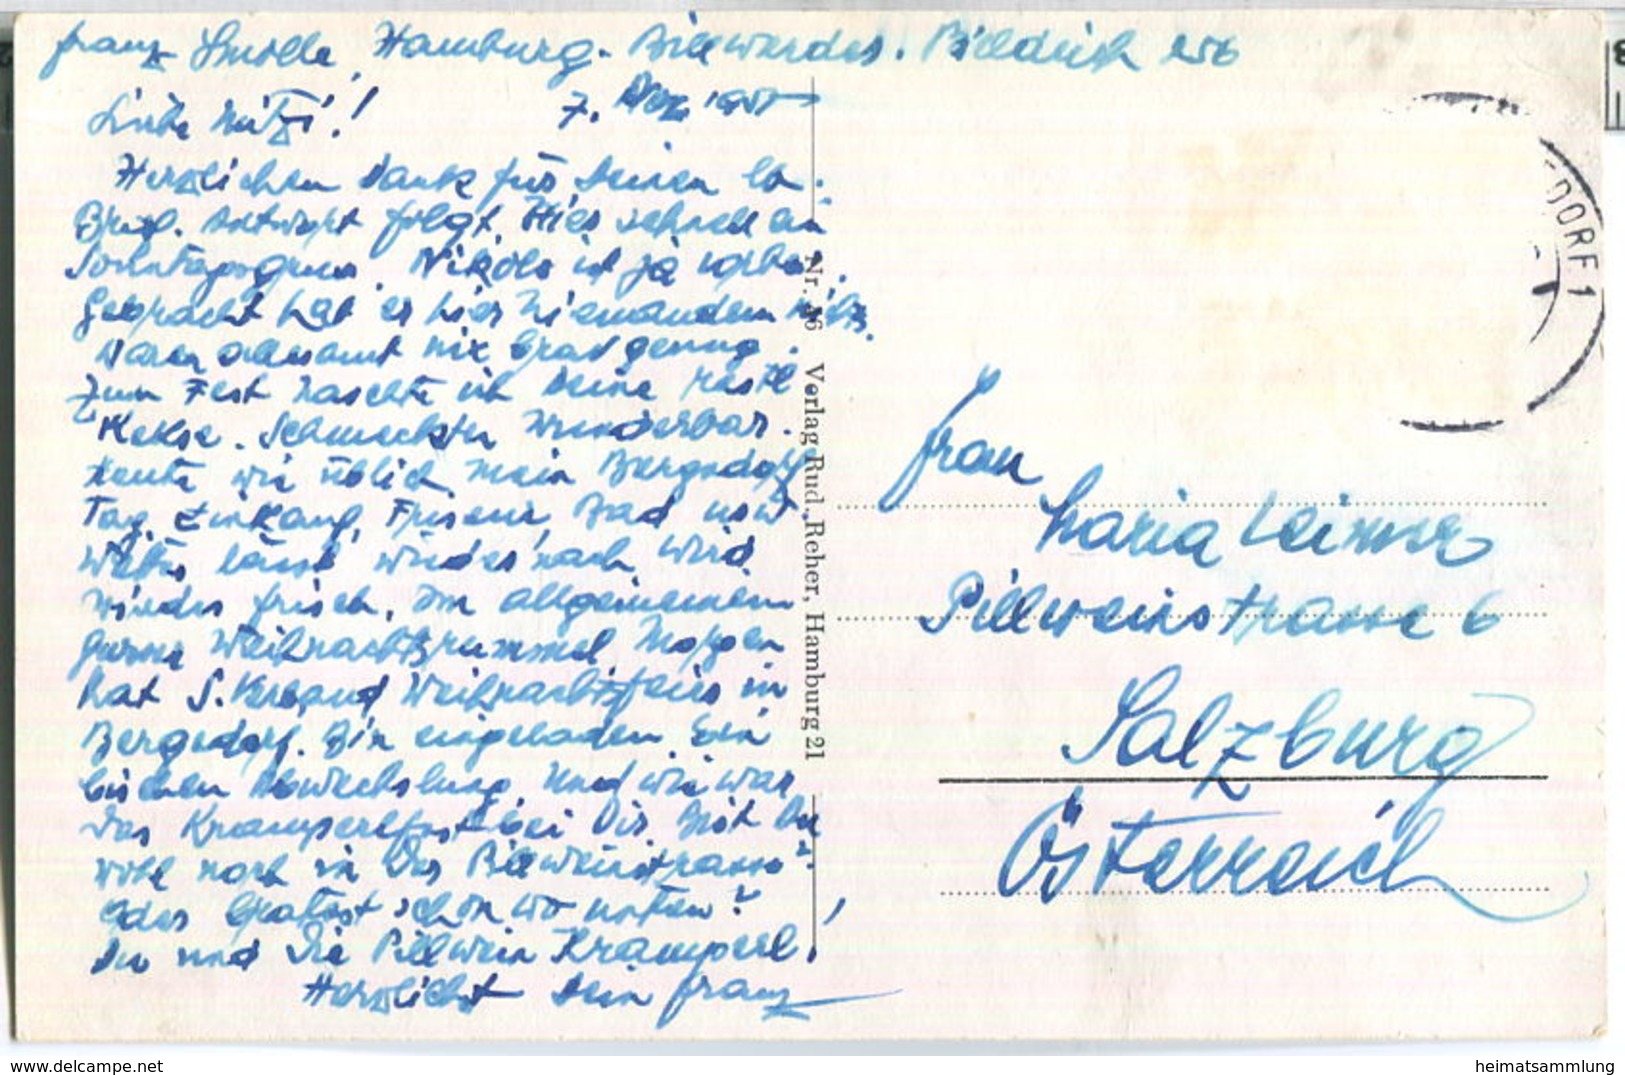 Franz Smolle, Hamburg. Billwerder. Billdeich 256
7. Dez. 1957
Liebe Mitzi!
Herzlichen Dank für Deinen lb.
Brief. Antwort folgt. Hier schnell ein
Sonntagsgruss. Nikolo ist ja vorbei.
Gebracht hat er hier niemandem nix.
Waren allesamt nix brav genug.
Zum Fest naschte ich Deine restl
Kekse. Schmeckten wunderbar.
Heute wie üblich mein Bergedorf
Tag, Einkauf, Friseur, Bad usw
Wetter lässt wieder nach wird
wieder frisch. Im allgemeinen
grosse Weihnachtsrummel. Morgen
hat S. Verband Weihnachtsfeier in
Bergedorf. Bin eingeladen. Ein
bischen Abwechslung. Und wie war
das Kramperlfest bei Dir. Bist Du
wohl noch in der Pillweinstrasse?
oder bratest schon wo unten?
Du und Die Pillwein Kramperl,
Herzlichst Dein Franz
Nr. 46 Verlag Rud. Reher, Hamburg 21
DORF 1
Frau
Maria Leimer
Pillweinstrasse 6
Salzburg
Österreich
heimatsammlung